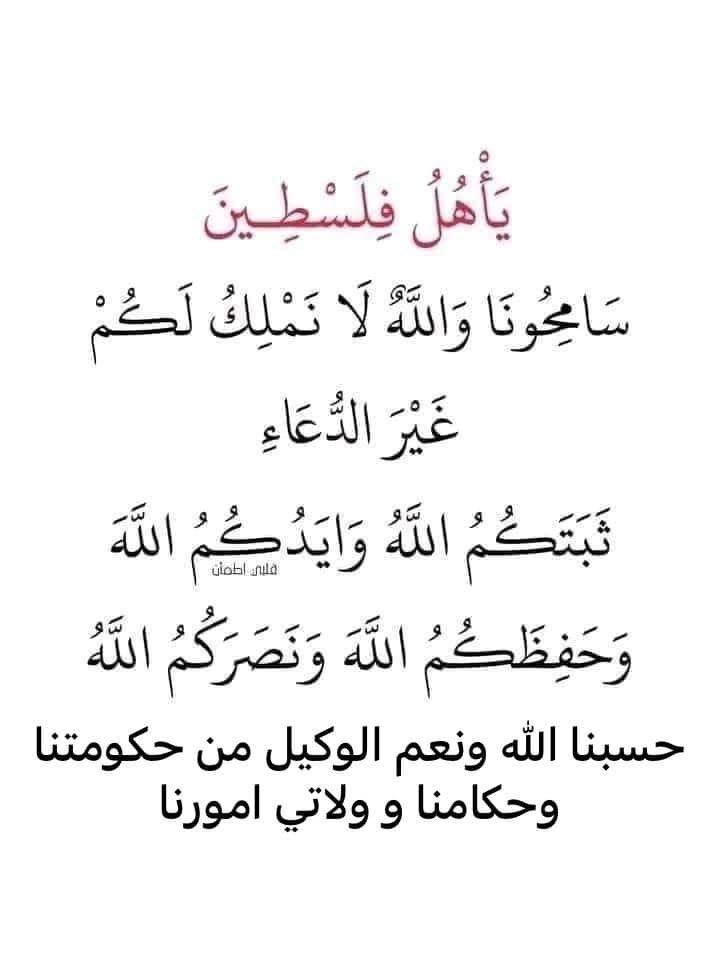 يَأْهُلُ فِلَسْطِـينَ
سَامِحُونَا وَاللَّهٌ لَا نَمْلِكُ لَكُمْ
غَيْرَ الدُّعَاءِ
ثَبَتَكُمُ اللَّهُ وَايَدُكُمُ اللَّهَ
قلبي اطمئن
وَحَفِظَكُمُ اللَّهَ وَنَصَرَكُمُ اللَّهُ
حسبنا الله ونعم الوكيل من حكومتنا
وحكامنا و ولاتي امورنا